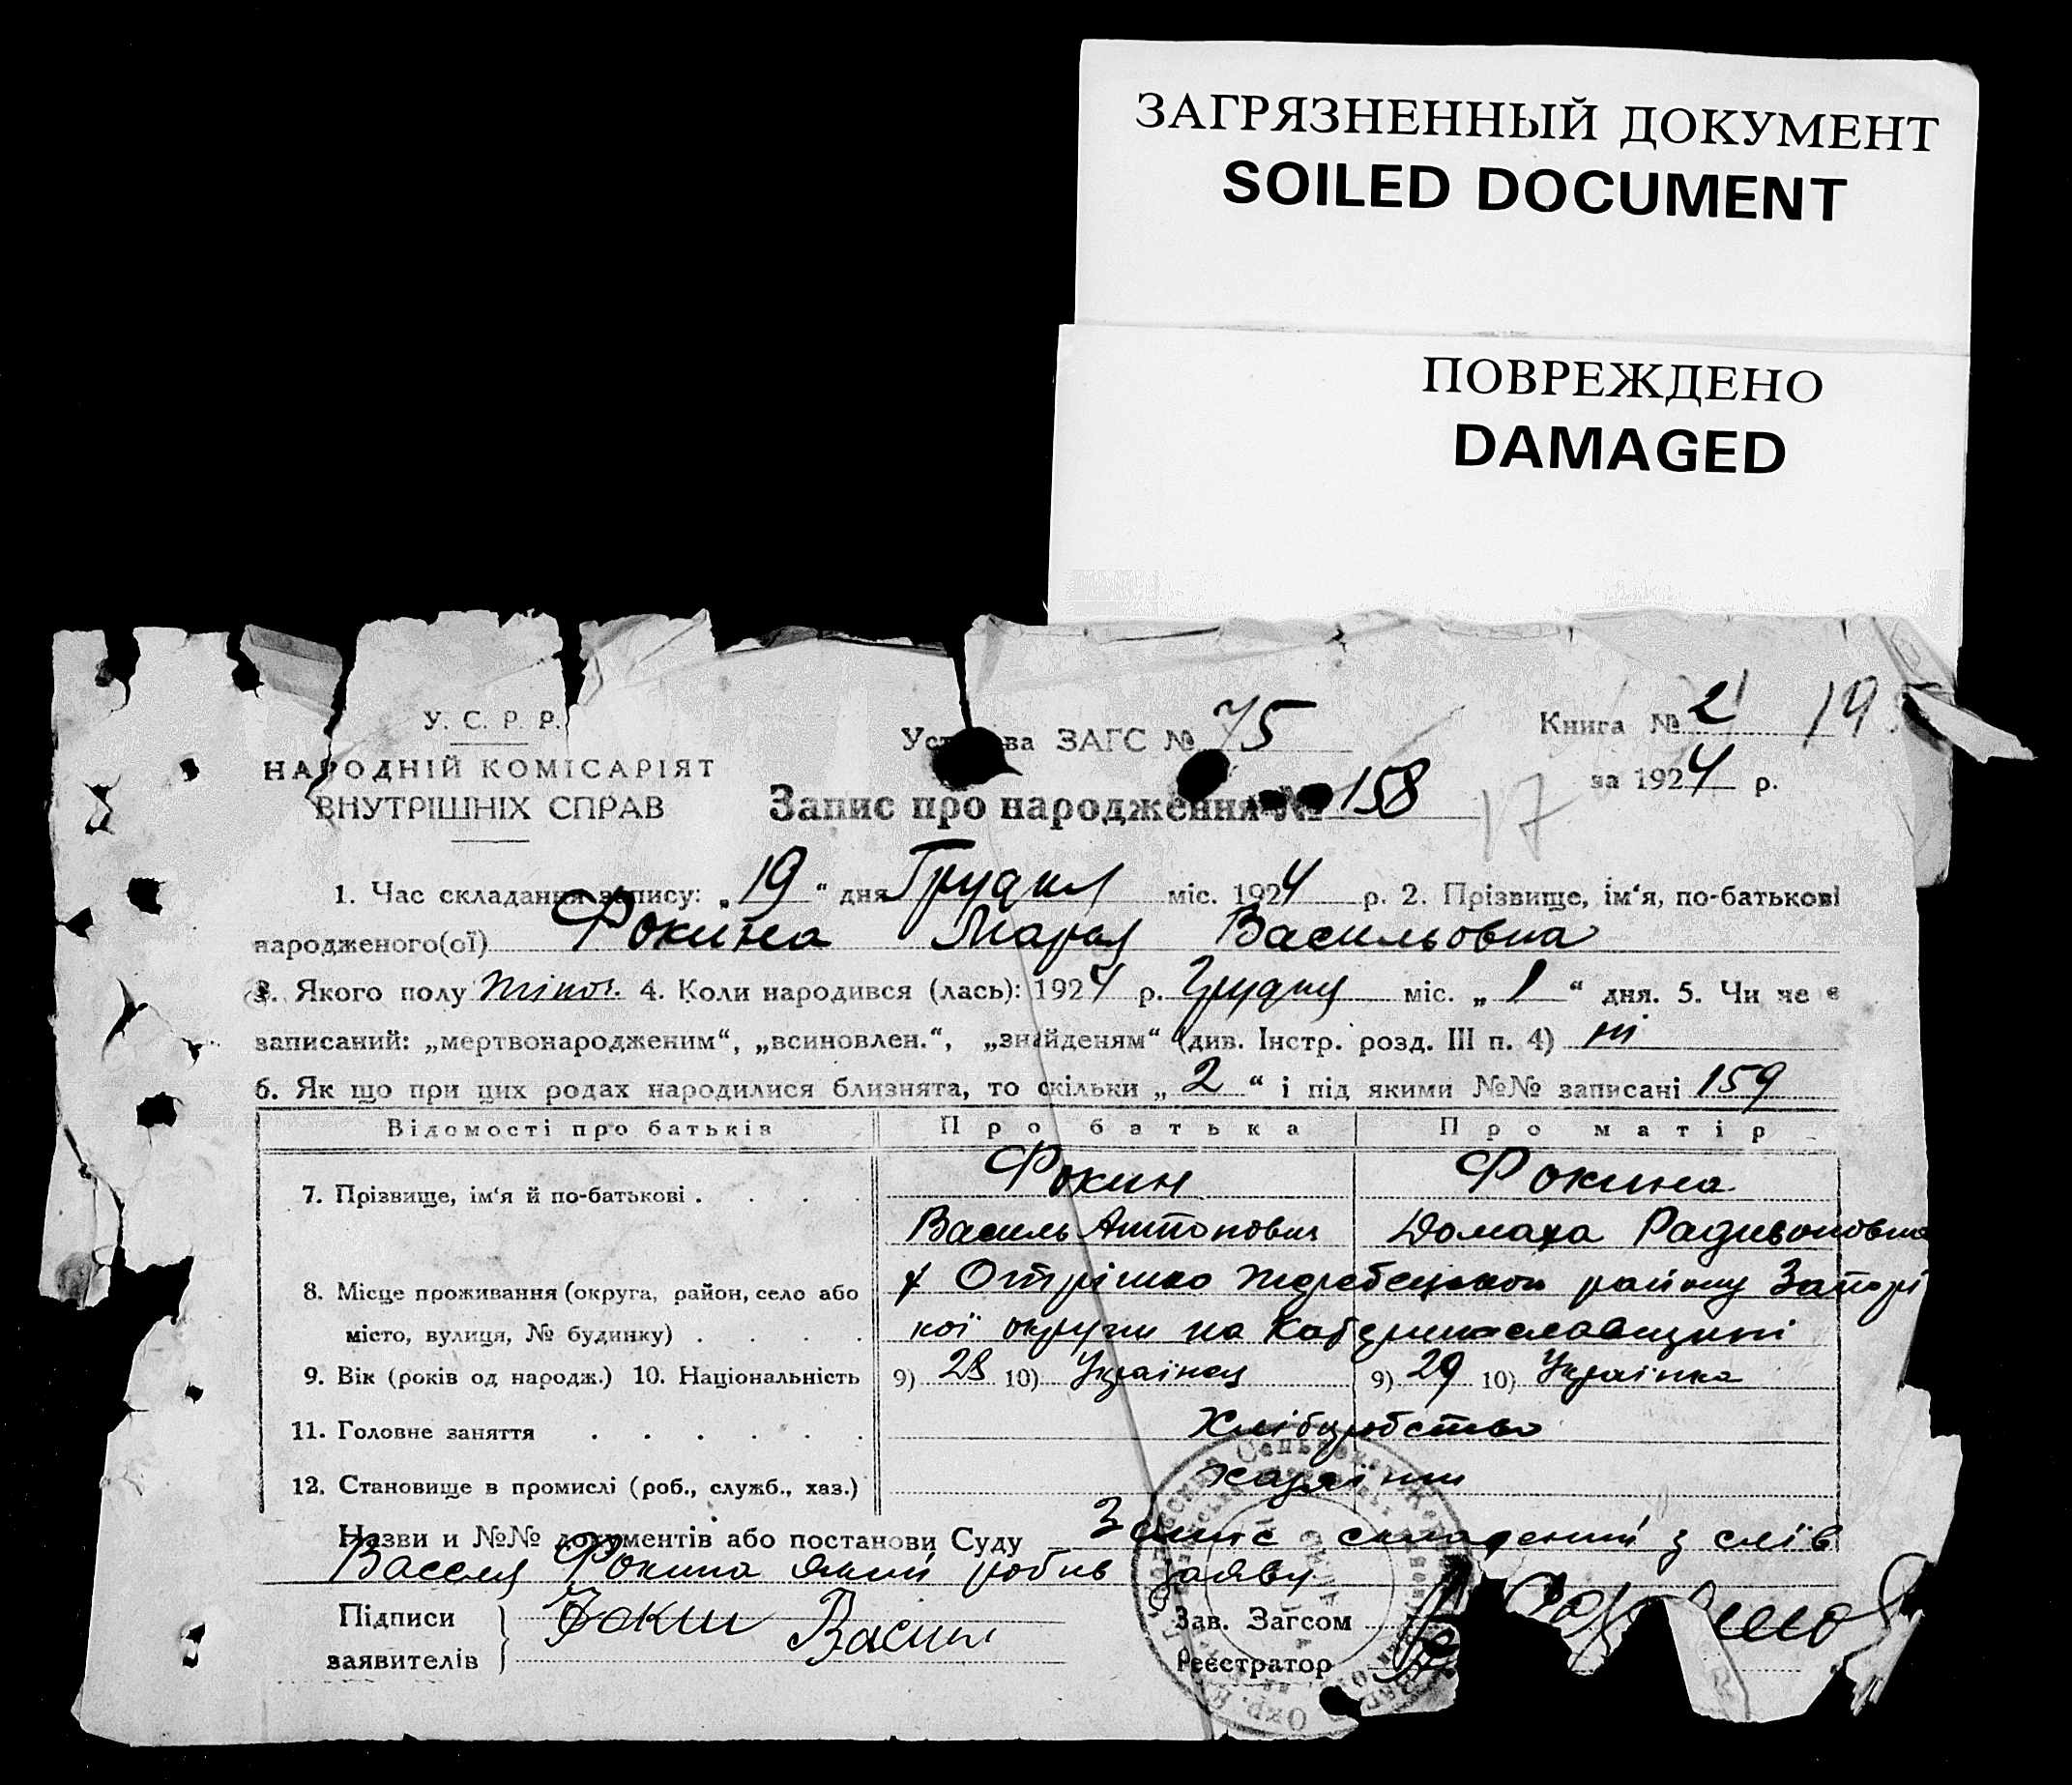 ЗАГРЯЗНЕННЫЙ ДОКУМЕНТ
SOILED DOCUMENT
ПОВРЕЖДЕНО
DAMAGED
У. С. Р. Р.
НАРОДНІЙ КОМІСАРІЯТ
ВНУТРІШНІХ СПРАВ
ЗАГС № 75
Книга № 2 19
за 1924 р.
Запис про народження № 158
17
1. Час складання запису: „19“ дня Грудня міс. 1924 р. 2. Прізвище, ім‘я, по-батькові
народженого(ої) Фокина Мария Васильовна
3. Якого полу жіноч. 4. Коли народився (лась): 1924 р. Грудня міс. „1“ дня. 5. Чи не є
записаний: „мертвонародженим“, „всиновлен.“, „знайденям“ (див. Інстр. розд. III п. 4) ні
6. Як що при цих родах народилися близнята, то скільки „2“ і під якими №№ записані 159
Відомості про батьків Про батька Про матір
7. Прізвище, ім‘я й по-батькові . . . . Фокин Фокина
Василь Антонович Домаха Радивоновна
8. Місце проживання (округа, район, село або
місто, вулиця, № будинку) . . . . округи на Катеринославщині
9. Вік (років од народж.) 10. Національність 9) 28 10) Українец 9) 29 10) Українка
11. Головне заняття . . . . . . Хліборобство
12. Становище в промислі (роб., служб., хаз.) хазяіни
Назви и №№ документів або постанови Суду Запис складений з слів
Василя Фокина який робив заяву
Підписи
заявителів
Фокин Васил
Зав. Загсом
Реєстратор